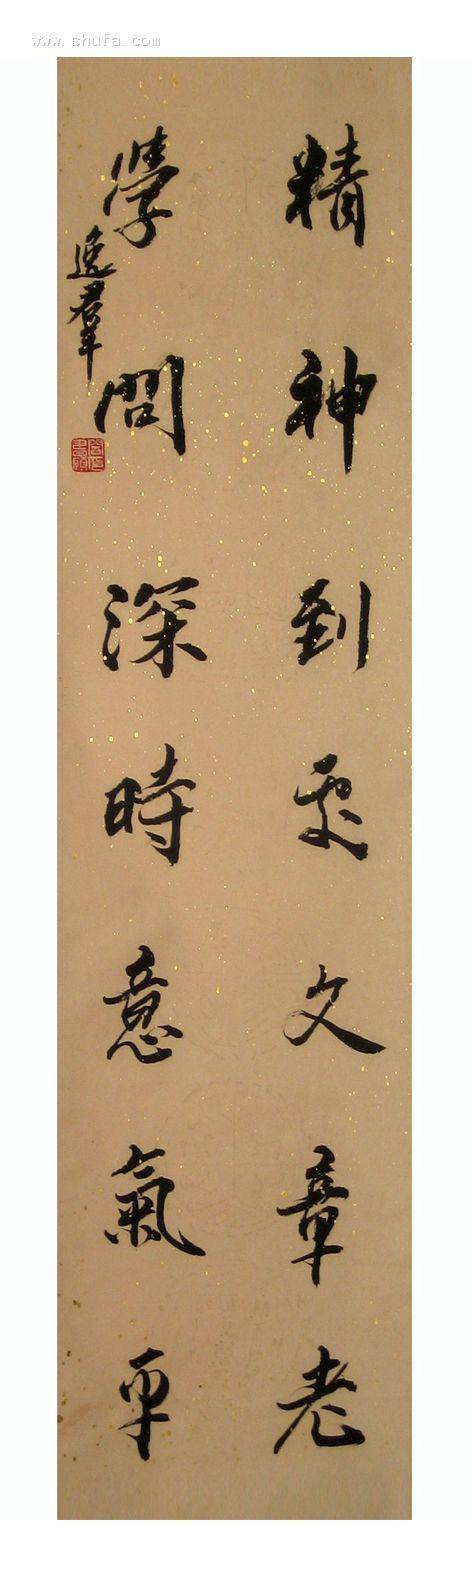 www.shufa.com
精神到處文章老
學問深時意氣平
逸羣